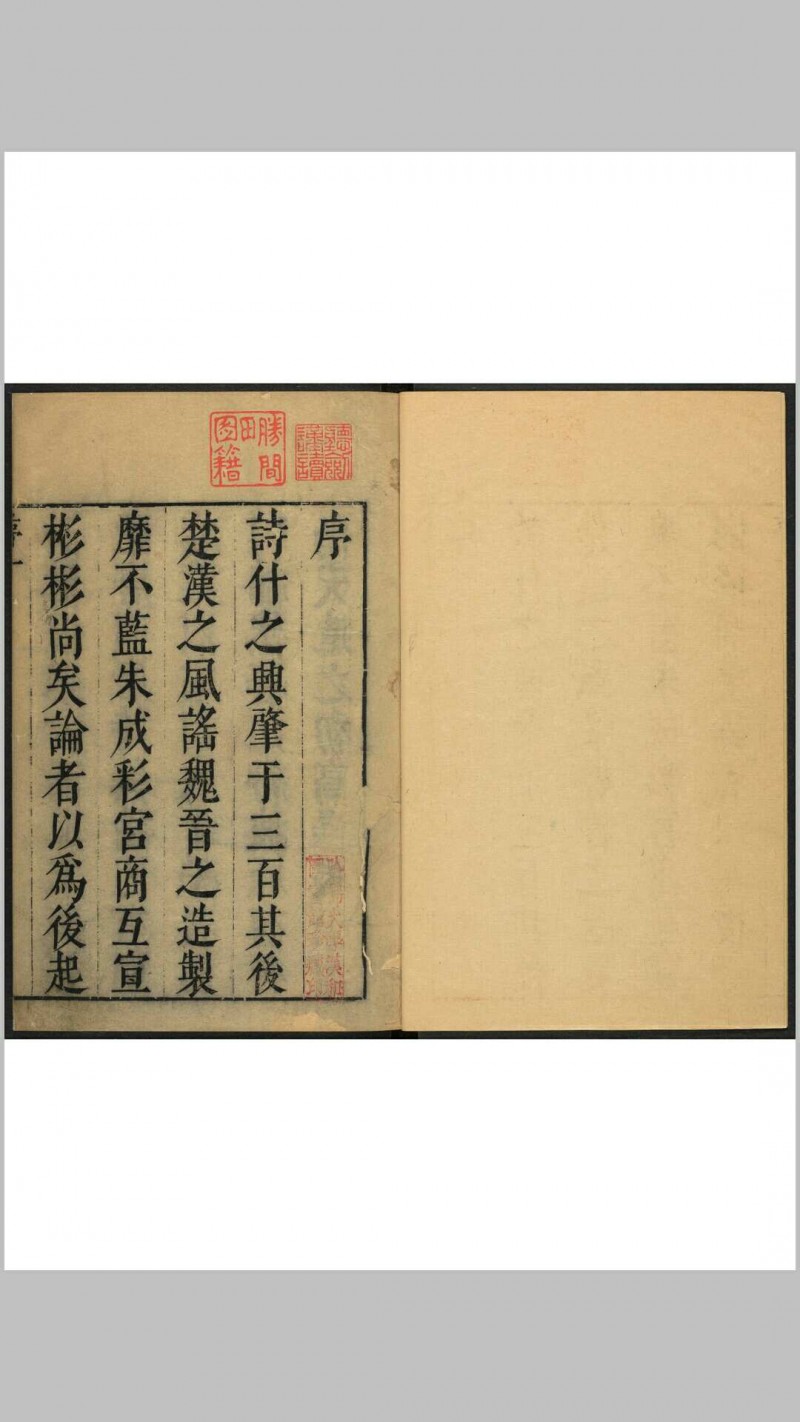 序
詩什之興肇于三百其後
楚漢之風謠魏晉之造製
靡不藍朱成彩宮商互宣
彬彬尚矣論者以爲後起
勝間田圖籍